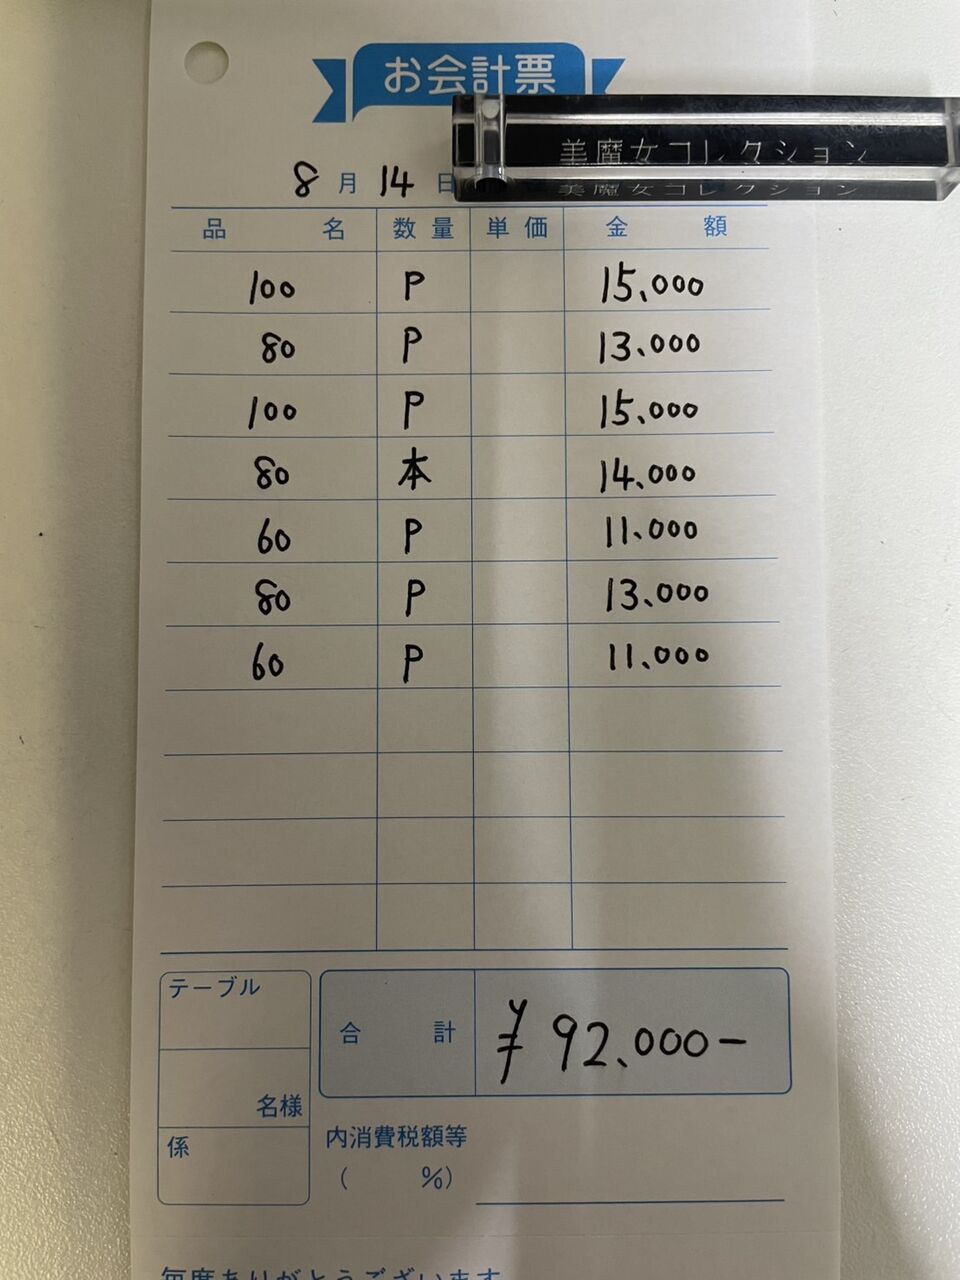 お会計票
美魔女コレクション
美魔女コレクション
8 月 14 日
品名 数量 単価 金額
100 P 15,000
80 P 13,000
100 P 15,000
80 本 14,000
60 P 11,000
80 P 13,000
60 P 11,000
テーブル
合計 ¥92,000-
名様
係
内消費税額等
( %)
毎度ありがとうございます